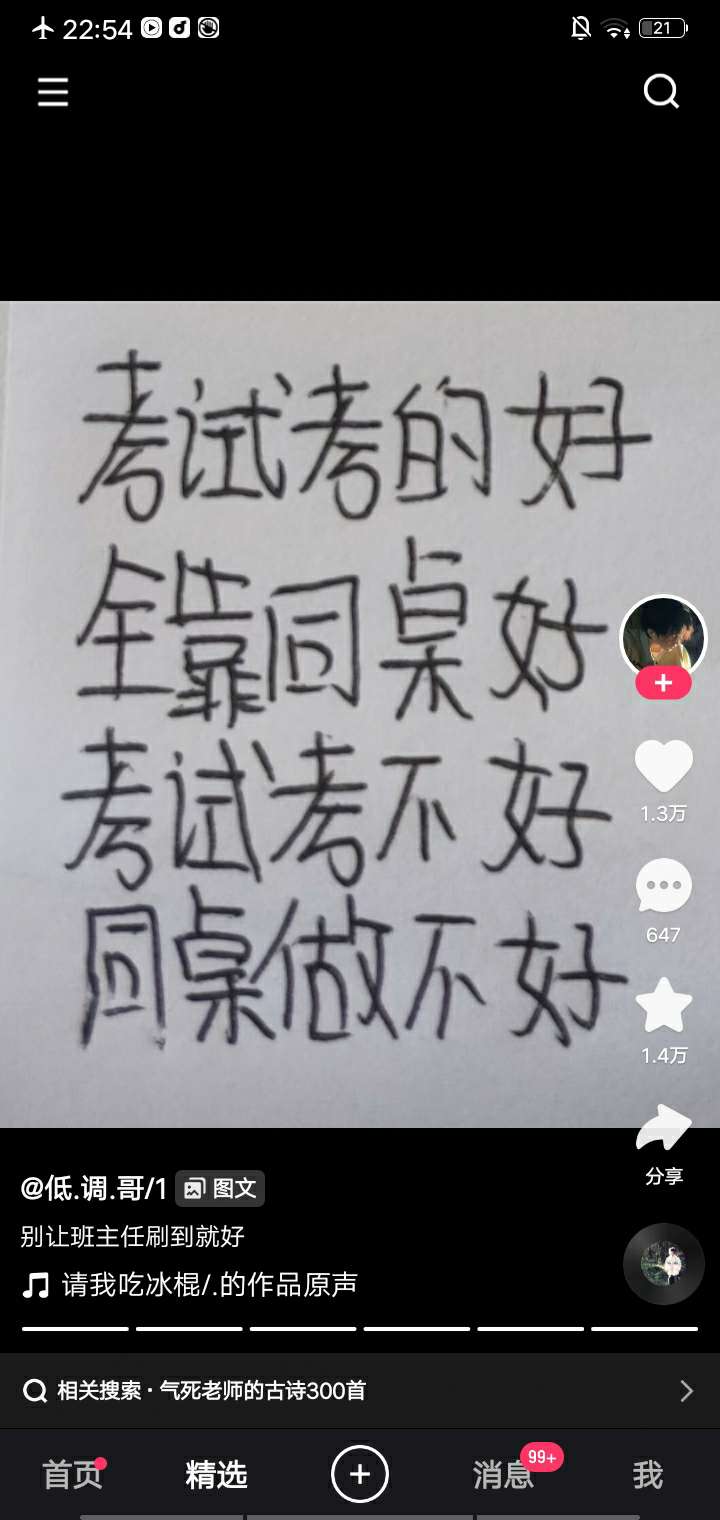 22:54
21
考试考的好
全靠同桌好
考试考不好
同桌做不好
1.3万
647
1.4万
分享
@低.调.哥/1 图文
别让班主任刷到就好
请我吃冰棍/.的作品原声
相关搜索 · 气死老师的古诗300首
首页 精选 消息 99+ 我